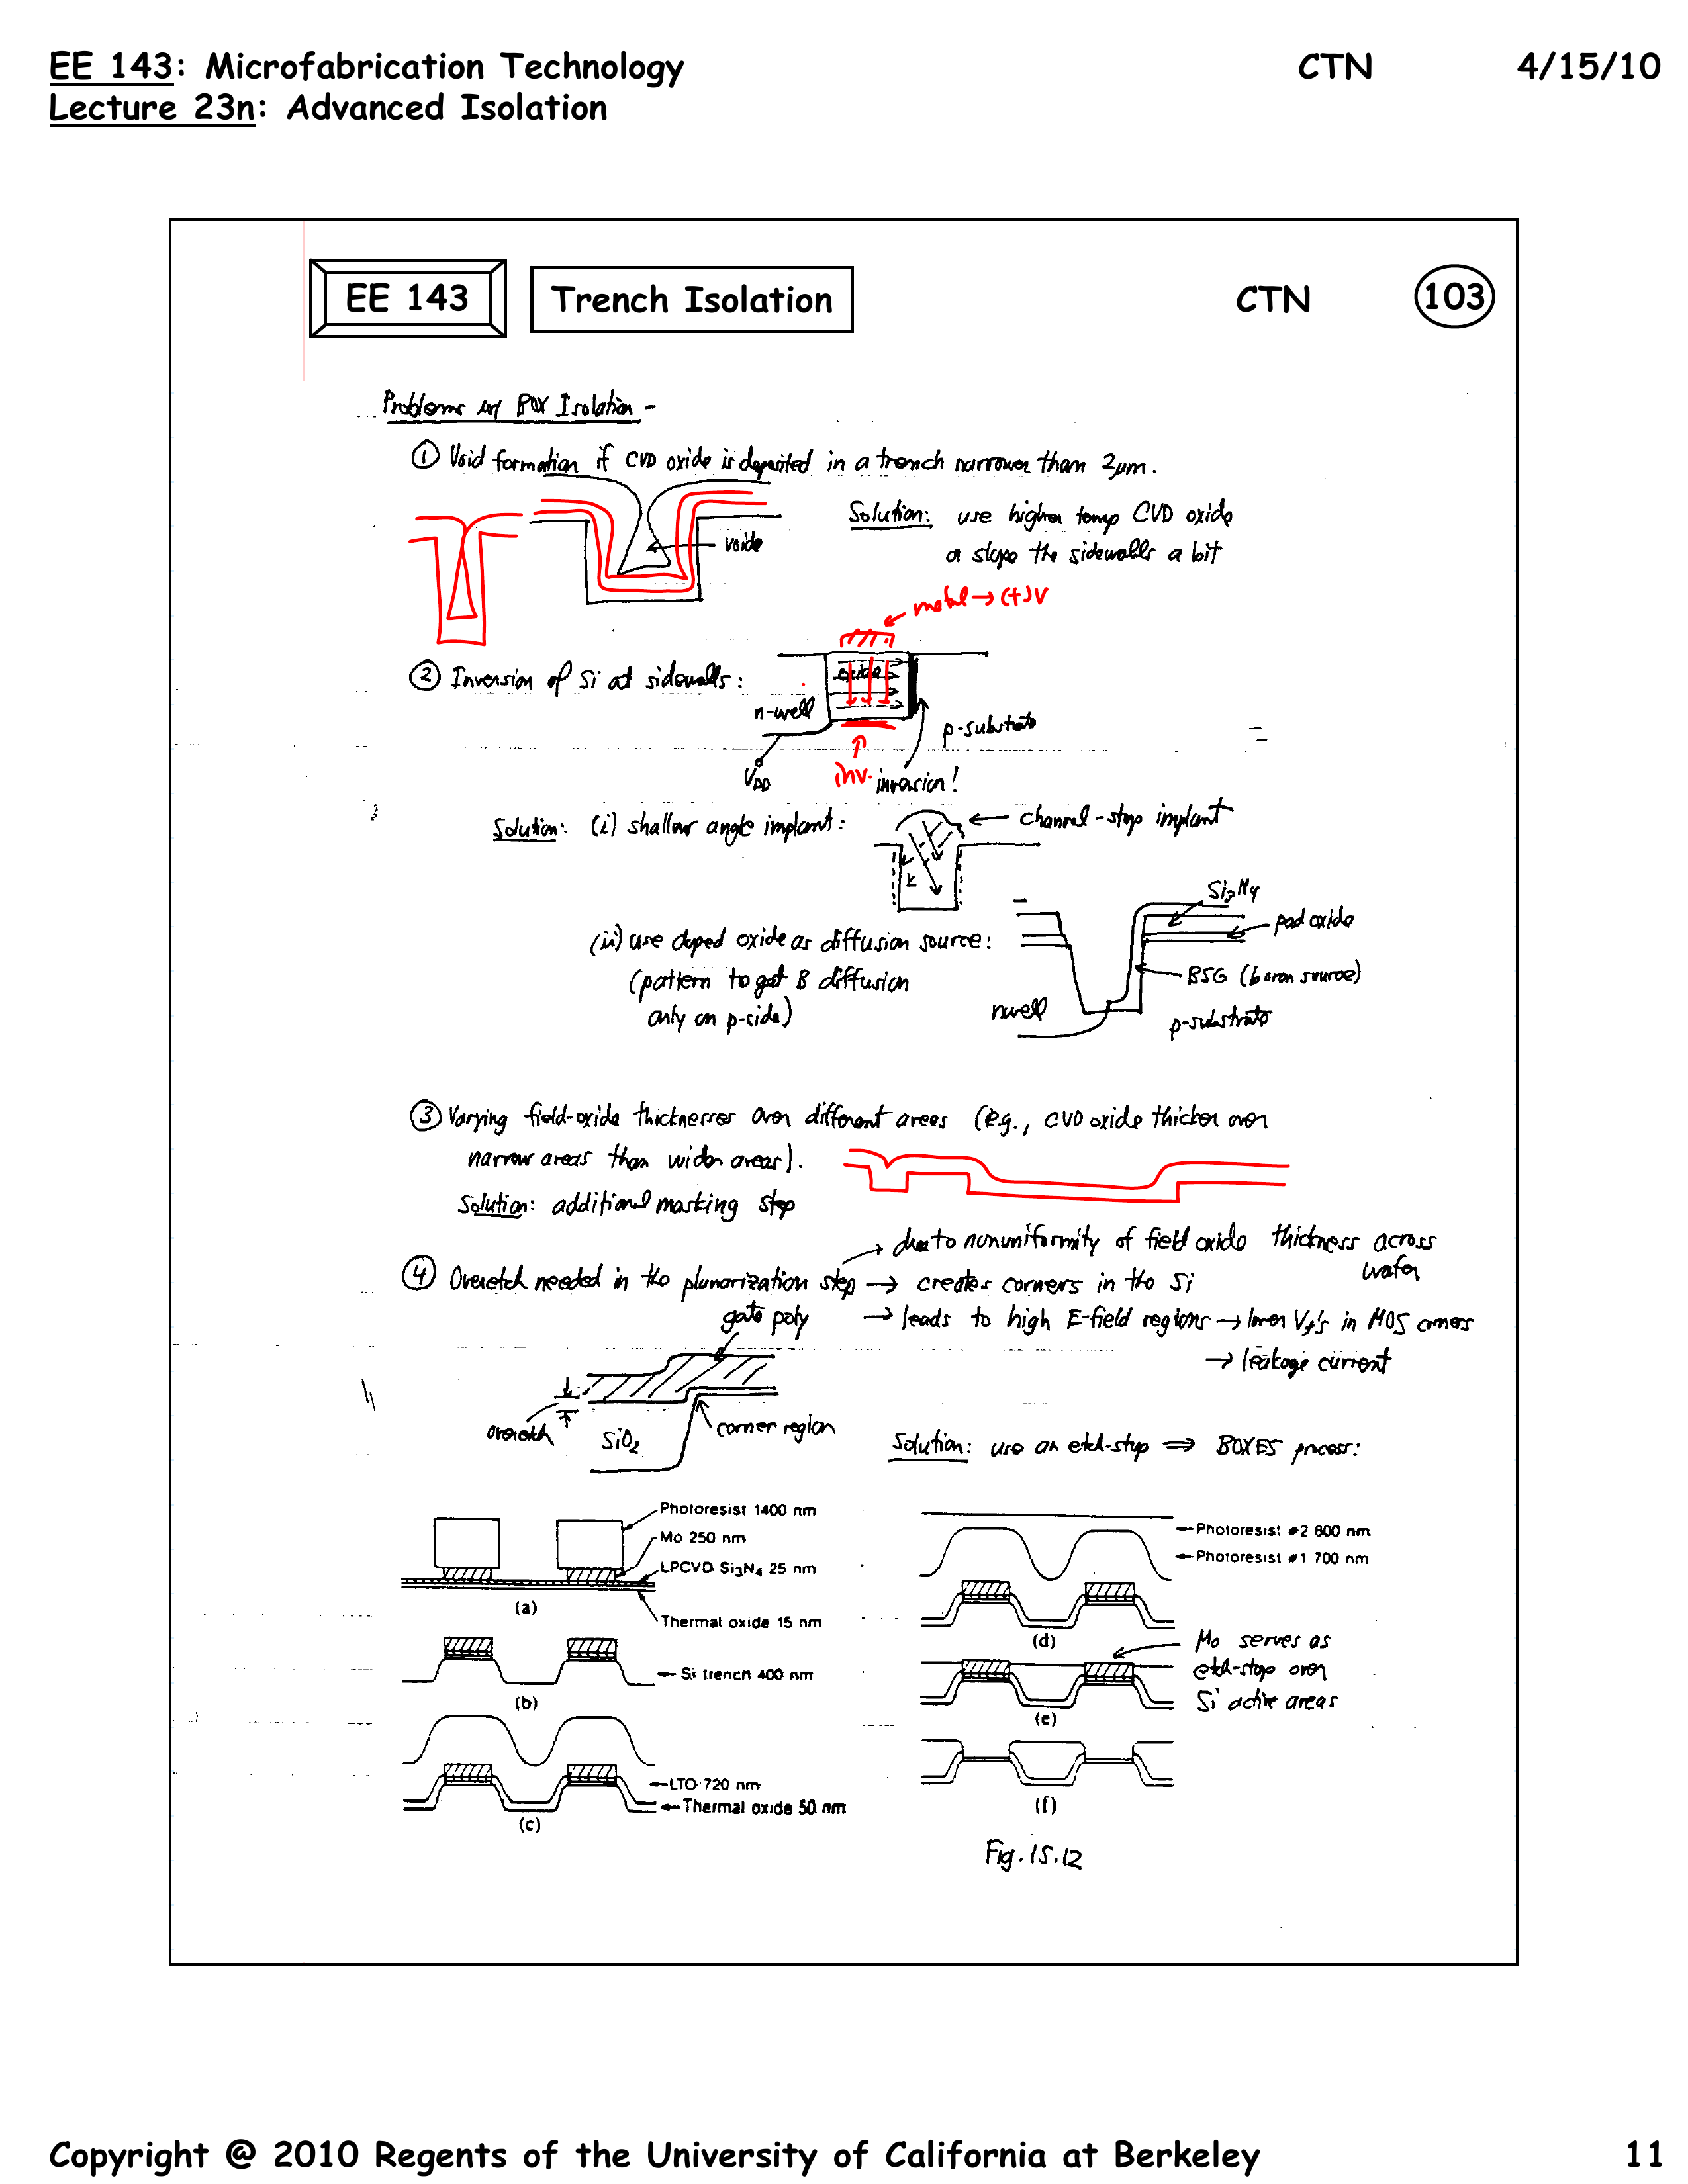 EE 143: Microfabrication Technology CTN 4/15/10
Lecture 23n: Advanced Isolation
EE 143 Trench Isolation CTN 103
Problems w/ BOX Isolation -
① Void formation if CVD oxide is deposited in a trench narrower than 2μm.
Solution: use higher temp CVD oxide
voids
or slope the sidewalls a bit
metal → (+)V
② Inversion of Si at sidewalls:
oxide
n-well
p-substrate
VDD
inv. inversion!
Solution: (i) shallow angle implant:
channel-stop implant
Si3N4
pad oxide
(ii) use doped oxide as diffusion source:
(pattern to get B diffusion
BSG (boron source)
only on p-side)
nwell
p-substrate
③ Varying field-oxide thicknesses over different areas (e.g., CVD oxide thicker over
narrow areas than wider areas).
Solution: additional masking step
→ due to nonuniformity of field oxide thickness across
wafer
④ Overetch needed in the planarization step → creates corners in the Si
gate poly
→ leads to high E-field regions → lower Vt's in MOS corners
→ leakage current
overetch
SiO2
corner region
Solution: use an etch-stop ⇒ BOXES process:
Photoresist 1400 nm
Mo 250 nm
LPCVD Si3N4 25 nm
(a)
Thermal oxide 15 nm
Si trench 400 nm
(b)
LTO 720 nm
Thermal oxide 50 nm
(c)
Photoresist #2 600 nm
Photoresist #1 700 nm
(d)
Mo serves as
etch-stop over
Si active areas
(e)
(f)
Fig. 15.12
Copyright @ 2010 Regents of the University of California at Berkeley 11